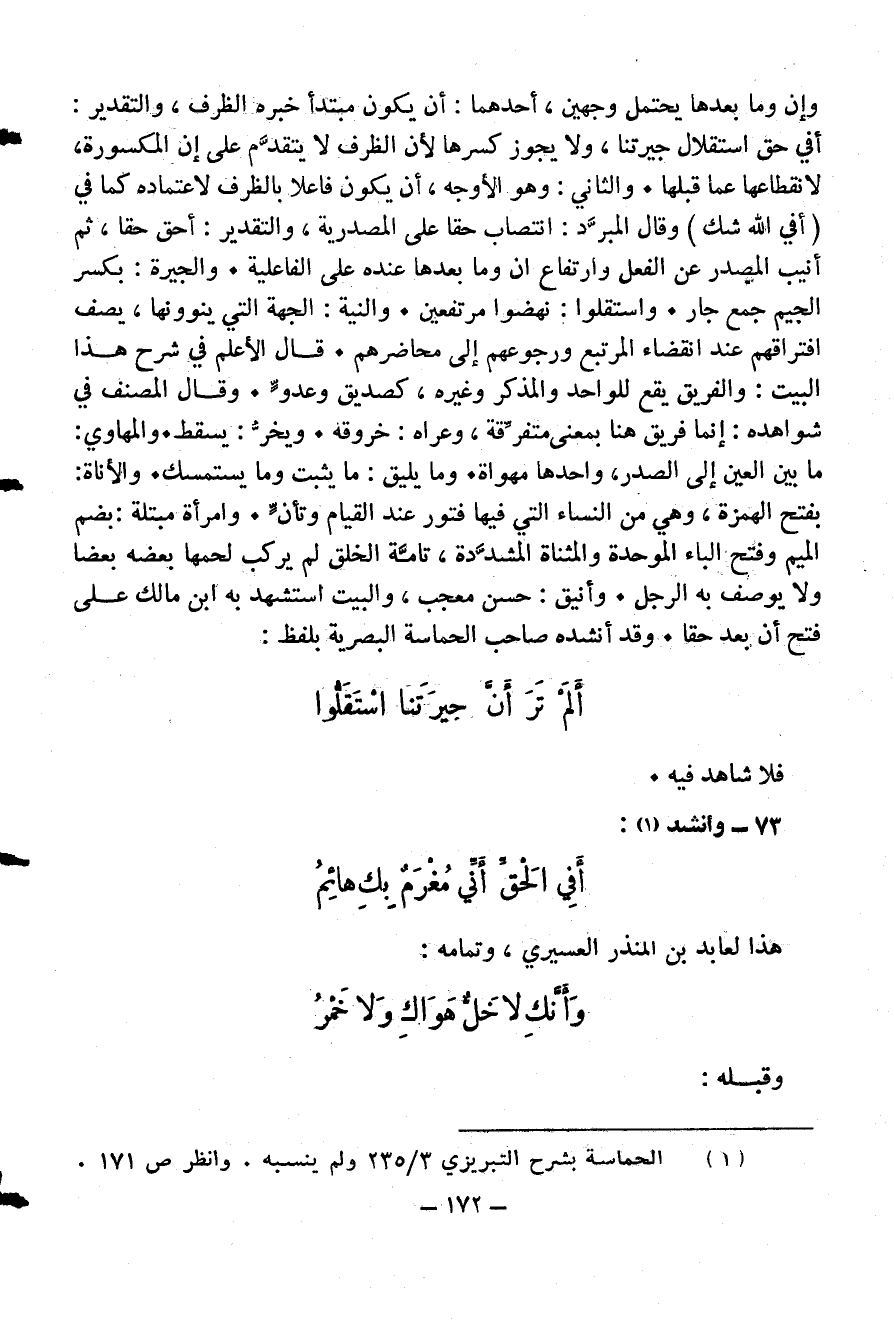 وإن وما بعدها يحتمل وجهين ، أحدهما : أن يكون مبتدأ خبره الظرف ، والتقدير :
أفي حق استقلال جيرتنا ، ولا يجوز كسرها لأن الظرف لا يتقدَّم على إن المكسورة،
لانقطاعها عما قبلها • والثاني : وهو الأوجه ، أن يكون فاعلا بالظرف لاعتماده كما في
( أفي الله شك ) وقال المبرَّد : انتصاب حقا على المصدرية ، والتقدير : أحق حقا ، ثم
أنيب المصدر عن الفعل وارتفاع ان وما بعدها عنده على الفاعلية • والجيرة : بكسر
الجيم جمع جار • واستقلوا : نهضوا مرتفعين • والنية : الجهة التي ينوونها ، يصف
افتراقهم عند انقضاء المرتبع ورجوعهم إلى محاضرهم • قــال الأعلم في شرح هــذا
البيت : والفريق يقع للواحد والمذكر وغيره ، كصديق وعدوّ • وقــال المصنف في
شواهده : إنما فريق هنا بمعنى متفرِّقة ، وعراه : خروقه • ويخرُّ : يسقط•والمهاوي:
ما بين العين إلى الصدر، واحدها مهواة• وما يليق : ما يثبت وما يستمسك• والأناة:
بفتح الهمزة ، وهي من النساء التي فيها فتور عند القيام وتأنٍّ • وامرأة مبتلة :بضم
الميم وفتح الباء الموحدة والمثناة المشدَّدة ، تامـَّة الخلق لم يركب لحمها بعضه بعضا
ولا يوصف به الرجل • وأنيق : حسن معجب ، والبيت استشهد به ابن مالك عــلى
فتح أن بعد حقا • وقد أنشده صاحب الحماسة البصرية بلفظ :
أَلَمْ تَرَ أَنَّ جِيرَتَنا اسْتَقَلُّوا
فلا شاهد فيه •
٧٣ – وانشد (١) :
أَفِي الَحْقِّ أَنِّي مُغْرَمٌ بِكِ هائِمُ
هذا لعابد بن المنذر العسيري ، وتمامه :
وَأَنَّكِ لا خَلٌّ هَوَاكِ وَلا خَمْرُ
وقبــله :
(١) الحماسة بشرح التبريزي ٢٣٥/٣ ولم ينسبه . وانظر ص ١٧١ .
– ١٧٢ –